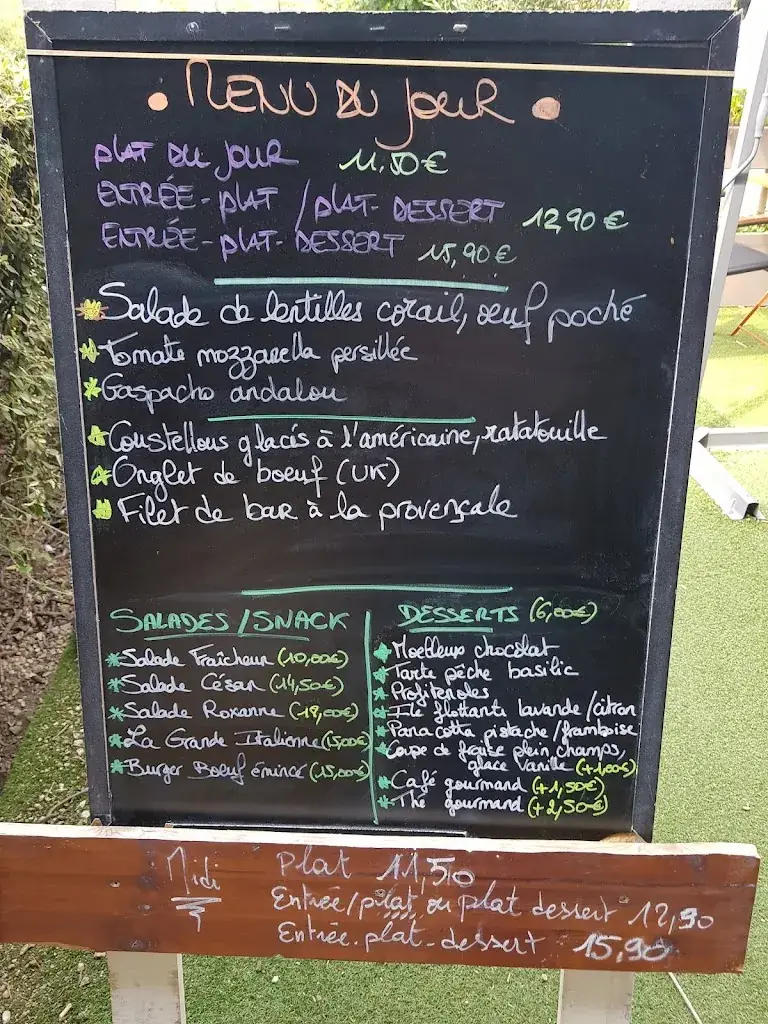 • MENU DU JOUR •
PLAT DU JOUR 11,50€
ENTRÉE-PLAT / PLAT-DESSERT 12,90€
ENTRÉE-PLAT-DESSERT 15,90€
Salade de lentilles corail, œuf poché
Tomate mozzarella persillée
Gaspacho andalou
Coustellous glacés à l'américaine, ratatouille
Onglet de boeuf (UK)
Filet de bar à la provençale
SALADES/SNACK
*Salade Fraîcheur (10,00€)
*Salade César (14,50€)
*Salade Roxanne (18,00€)
*La Grande Italienne (15,00€)
*Burger Boeuf émincé (15,00€)
DESSERTS (6,00€)
*Moelleux chocolat
*Tarte pêche basilic
*Profiteroles
*Ile flottante lavande/citron
*Pana cotta pistache/framboise
*Coupe de fraise plein champs,
glace vanille (+1,00€)
*Café gourmand (+1,50€)
*Thé gourmand (+2,50€)
Midi
Plat 11,50
Entrée/plat ou plat dessert 12,90
Entrée-plat-dessert 15,90